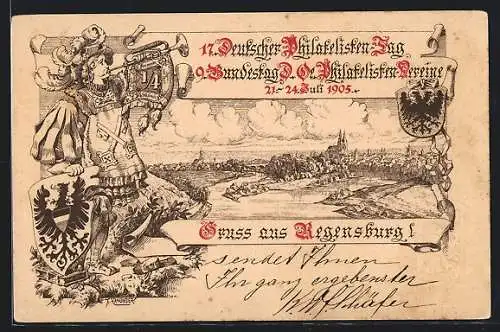 17. Deutscher Philatelisten-Tag
9. Bundestag D. Oe. Philatelisten Vereine
21.-24. Juli 1905.
Gruss aus Regensburg!
sendet Ihnen
Ihr ganz ergebenster
Schäfer